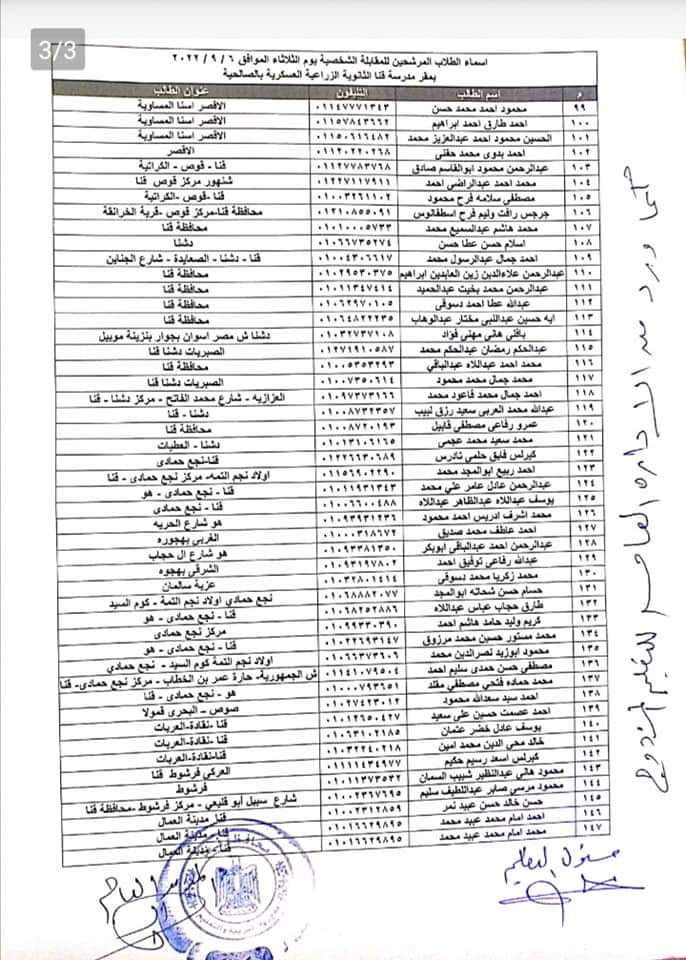 3/3
اسماء الطلاب المرشحين للمقابلة الشخصية يوم الثلاثاء الموافق ٦ / ٩ / ٢٠٢٢
بمقر مدرسة قنا الثانوية الزراعية العسكرية بالصالحية
م اسم الطالب التليفون عنوان الطالب
٩٩ محمود احمد محمد حسن ٠١١٤٧٧٧١٣٤٣ الاقصر اسنا المساوية
١٠٠ احمد طارق احمد ابراهيم ٠١١٥٧٨٤٣٦٦٢ الاقصر اسنا المساوية
١٠١ الحسين محمود احمد عبدالعزيز محمد ٠١١٥٠٦١٦٤٨٢ الاقصر اسنا المساوية
١٠٢ احمد بدوى محمد حفنى ٠١١٢٠٢٢٠٢٦٨ الاقصر
١٠٣ عبدالرحمن محمود ابوالقاسم صادق ٠١١٢٧٧٨٣٧٦٨ قنا - قوص - الكراتية
١٠٤ محمد احمد عبدالراضى احمد ٠١٢٢٧١١٧٩١١ شنهور مركز قوص قنا
١٠٥ مصطفى سلامه فرح محمود ٠١٠٠٣٢٦١١٠٢ قنا - قوص -الكراتية
١٠٦ جرجس رافت وليم فرح اسطفانوس ٠١٢١٠٨٥٥٠٩١ محافظة قنا-مركز قوص -قرية الخرانقة
١٠٧ محمد هاشم عبدالسميع محمد ٠١٠١٠٠٠٥٧٣٣ محافظة قنا
١٠٨ اسلام حسن عطا حسن ٠١٠٦٦٧٣٥٢٧٤ دشنا
١٠٩ احمد جمال عبدالرسول محمد ٠١٠٠٤٣٠٦٦١٧ قنا - دشنا - الصعايدة - شارع الجناين
١١٠ عبدالرحمن علاءالدين زين العابدين ابراهيم ٠١٠٢٩٥٣٠٣٧٥ محافظة قنا
١١١ عبدالرحمن محمد بخيت عبدالحميد ٠١٠١١٣٤٧٤١٤ محافظة قنا
١١٢ عبدالله عطا احمد دسوقى ٠١٠٦٢٩٧٠١٠٥ محافظة قنا
١١٣ ايه حسين عبداللبى مختار عبدالوهاب ٠١٠٦٤٨٢٢٢٣٥ محافظة قنا
١١٤ بافلى هانى مهنى فؤاد ٠١٠٣٢٧٣٧١٠٨ دشنا ش مصر اسوان بجوار بنزينة موبيل
١١٥ عبدالحكم رمضان عبدالحكم محمد ٠١٢٧١٩١٠٥٨٧ الصبريات دشنا قنا
١١٦ محمد احمد عبداللاه عبدالباقي ٠١٠٠٥٣٥٣٢٩٣ محافظة قنا
١١٧ محمد جمال محمد محمود ٠١٠٠٧٣٥٠٦١٤ الصبريات دشنا قنا
١١٨ احمد جمال محمد فاعود محمد ٠١٠٩٧٣٧٣١٦٦ العزازيه - شارع محمد الفاتح - مركز دشنا - قنا
١١٩ عبدالله محمد العربى سعيد رزق لبيب ٠١٠٠٨٧٣٢٣٥٧ دشنا - قنا
١٢٠ عمرو رفاعى مصطفى قابيل ٠١٠٠٨٧٢٠١٩٣ محافظة قنا
١٢١ محمد سعيد محمد عجمى ٠١٠١٣١٠٦١٦٥ دشنا - العطيات
١٢٢ كيرلس فايق حلمى تادرس ٠١٢٢٦٦٣٠٦٨٩ قنا-نجع حمادى
١٢٣ احمد ربيع ابوالمجد محمد ٠١١٥٦٩٠٢٢٩٠ اولاد نجم التمه- مركز نجع حمادى - قنا
١٢٤ عبدالرحمن عادل عامر على محمد ٠١٠١١٩٣١٣٤٣ قنا - نجع حمادى - هو
١٢٥ يوسف عبداللاه عبدالظاهر عبداللاه ٠١٠٠٦٦٠٠٤٨٨ قنا - نجع حمادى
١٢٦ محمد اشرف ادريس احمد محمود ٠١٠٩٣٩٣١٢٣٦ هو شارع الحريه
١٢٧ احمد عاطف محمد صديق ٠١٠٠٠٣١٨٦٧٢ الغربى بهجوره
١٢٨ عبدالرحمن احمد عبدالباقى ابوبكر ٠١٠٩٣٣٨١٣٥٠ هو شارع ال حجاب
١٢٩ عبدالله رفاعى توفيق احمد ٠١٠٩٣١٩٧٨٠٢ الشرقى بهجوه
١٣٠ محمد زكريا محمد دسوقى ٠١٠٣٢٨٠١٤١٤ عزبة سالمان
١٣١ حسام حسن شحاته ابوالمجد ٠١٠٦٨٨٨٢٠٧٧ نجع حمادي اولاد نجم التمة - كوم السيد
١٣٢ طارق حجاب عباس عبداللاه ٠١٠٦٨٢٥٢٨٨٦ قنا - نجع حمادى - هو
١٣٣ كريم وليد حامد هاشم احمد ٠١٠٩٩٣٣٠٣٩٠ مركز نجع حمادى
١٣٤ محمد مستور حسين محمد مرزوق ٠١٠٢٢٦٩٣١٤٧ قنا - نجع حمادى - هو
١٣٥ محمود ابوزيد نصرالدين محمد ٠١٠٦٦٣٧٣٦٠٦ اولاد نجم التمة كوم السيد - نجع حمادي
١٣٦ مصطفى حسن حمدى سليم احمد ٠١١٤١٠٧٩٥٠٤ ش الجمهورية- حارة عمر بن الخطاب - مركز نجع حمادى- قنا
١٣٧ محمد حماده فتحي مصطفي مقلد ٠١٠٠٠٧٩٣٦٥١ هو - نجع حمادى - قنا
١٣٨ احمد سيد سعدالله محمود ٠١٠٢٧٤٢٣٠١٢ صوص - البحرى قمولا
١٣٩ احمد عصمت حسين على سعيد ٠١٠١٢٦٥٠٤٢٧ قنا -نقادة-العربات
١٤٠ يوسف عادل خضر عثمان ٠١٠٦٣١٠٢١٨٥ قنا -نقادة-العربات
١٤١ خالد محى الدين محمد امين ٠١٠٣٢٢٤٠٢١٨ قنا-نقادة-العربات
١٤٢ كيرلس اسعد رسيم حكيم ٠١١١١٤٣٤٩٧٧ العركى فرشوط قنا
١٤٣ محمود هانى عبدالنظير شبيب السمان ٠١٠١١٣٧٣٥٣٢ فرشوط
١٤٤ محمود مرسى صابر عبداللطيف سليم ٠١٠٠٢٣٦٧٦٩٥ شارع سبيل أبو قليعي - مركز فرشوط -محافظة قنا
١٤٥ حسن خالد حسن عبيد نمر ٠١٠٠٢٣١٢٨٥٩ قنا مدينة العمال
١٤٦ احمد امام محمد عبيد محمد ٠١٠١٦٦٢٩٨٩٥ قنا مدينة العمال
١٤٧ محمد امام محمد عبيد محمد ٠١٠١٦٦٢٩٨٩٥ قنا مدينة العمال
كما ورد من الادارة العامه للتعليم المزدوج
مسئول التعليم
المدير العام